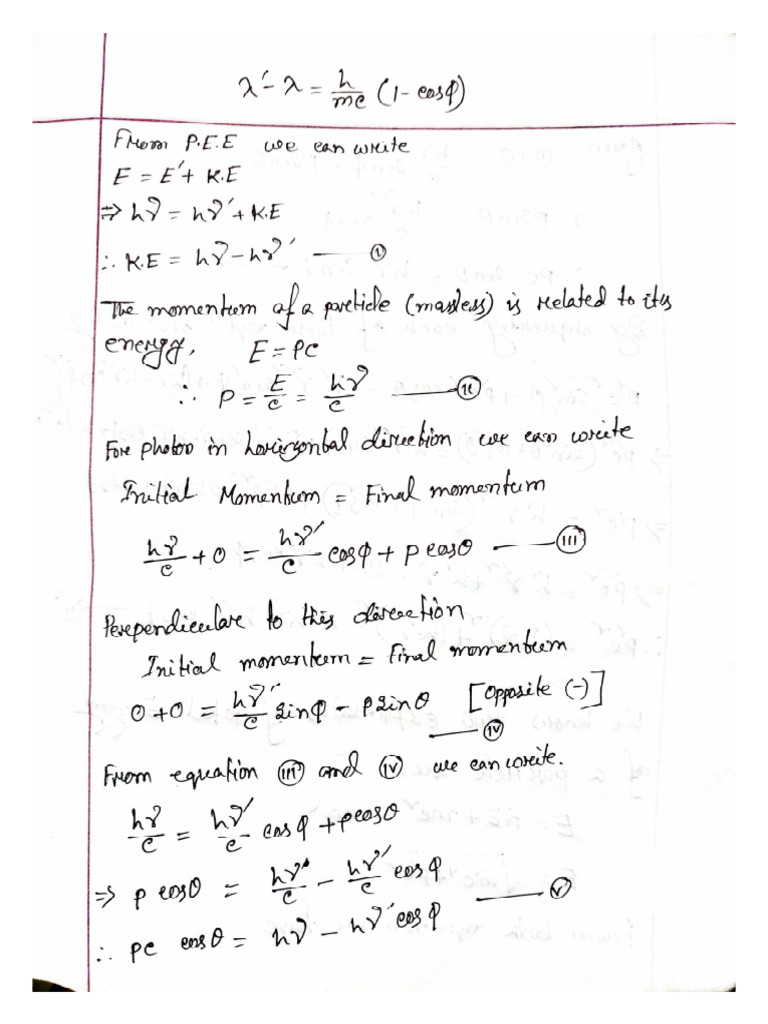 λ′ - λ = h/mc (1 - cosφ)
From P.E.E we can write
E = E′ + K.E
⇒ hν = hν′ + K.E
∴ K.E = hν - hν′ —— (i)
The momentum of a particle (massless) is related to its
energy, E = PC
∴ P = E/c = hν/c —— (ii)
For photon in horizontal direction we can write
Initial Momentum = Final momentum
hν/c + 0 = hν′/c cosφ + p cosθ —— (iii)
Perpendicular to this direction
Initial momentum = Final momentum
0 + 0 = hν′/c sinφ - p sinθ [opposite (-)]
—— (iv)
From equation (iii) and (iv) we can write.
hν/c = hν′/c cosφ + p cosθ
⇒ p cosθ = hν/c - hν′/c cosφ
—— (v)
∴ pc cosθ = hν - hν′ cosφ